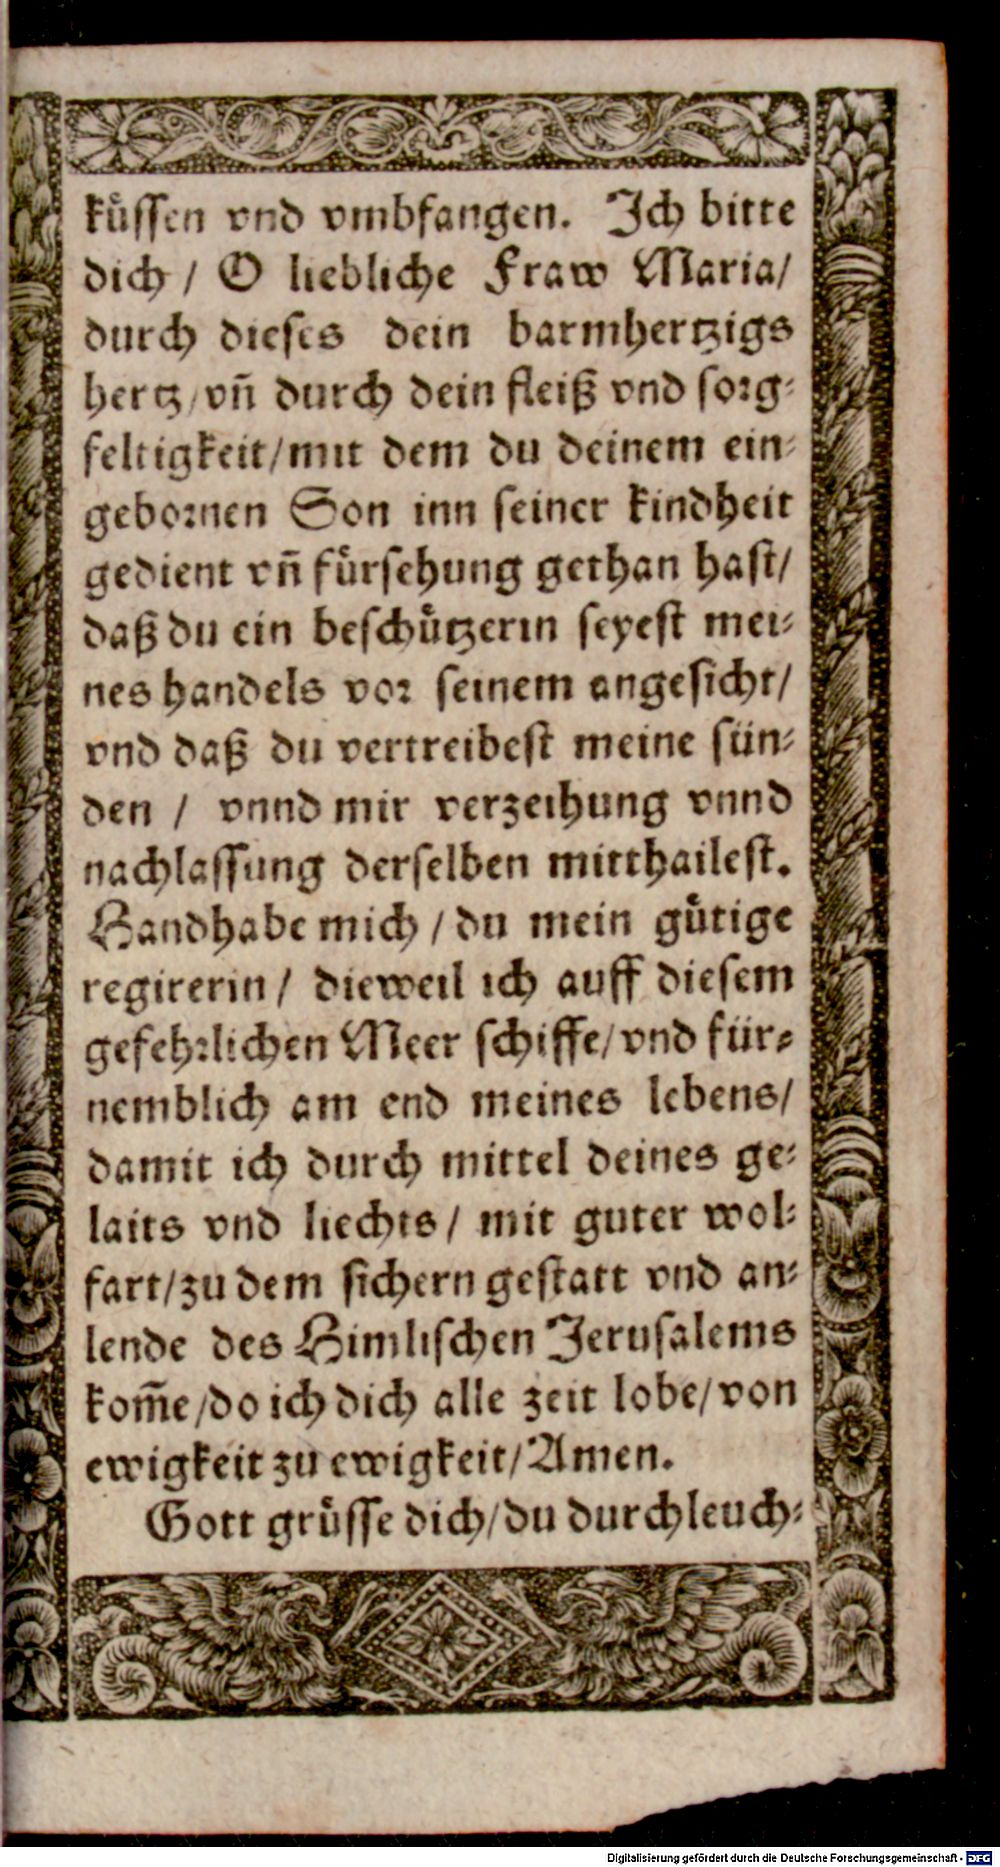 kuͤssen vnd vmbfangen. Ich bitte
dich / O liebliche Fraw Maria/
durch dieses dein barmhertzigs
hertz/vñ durch dein fleiß vnd sorg⸗
feltigkeit/mit dem du deinem ein⸗
gebornen Son inn seiner kindheit
gedient vñ fuͤrsehung gethan hast/
daß du ein beschuͤtzerin seyest mei⸗
nes handels vor seinem angesicht/
vnd daß du vertreibest meine sün⸗
den / vnnd mir verzeihung vnnd
nachlassung derselben mitthailest.
Handhabe mich / du mein guͤtige
regirerin / dieweil ich auff diesem
gefehrlichen Meer schiffe/vnd für⸗
nemblich am end meines lebens/
damit ich durch mittel deines ge⸗
laits vnd liechts / mit guter wol⸗
fart/zu dem sichern gestatt vnd an⸗
lende des Himlischen Jerusalems
kom̃e/do ich dich alle zeit lobe/von
ewigkeit zu ewigkeit/Amen.
Gott gruͤsse dich/du durchleuch⸗
Digitalisierung gefördert durch die Deutsche Forschungsgemeinschaft - DFG